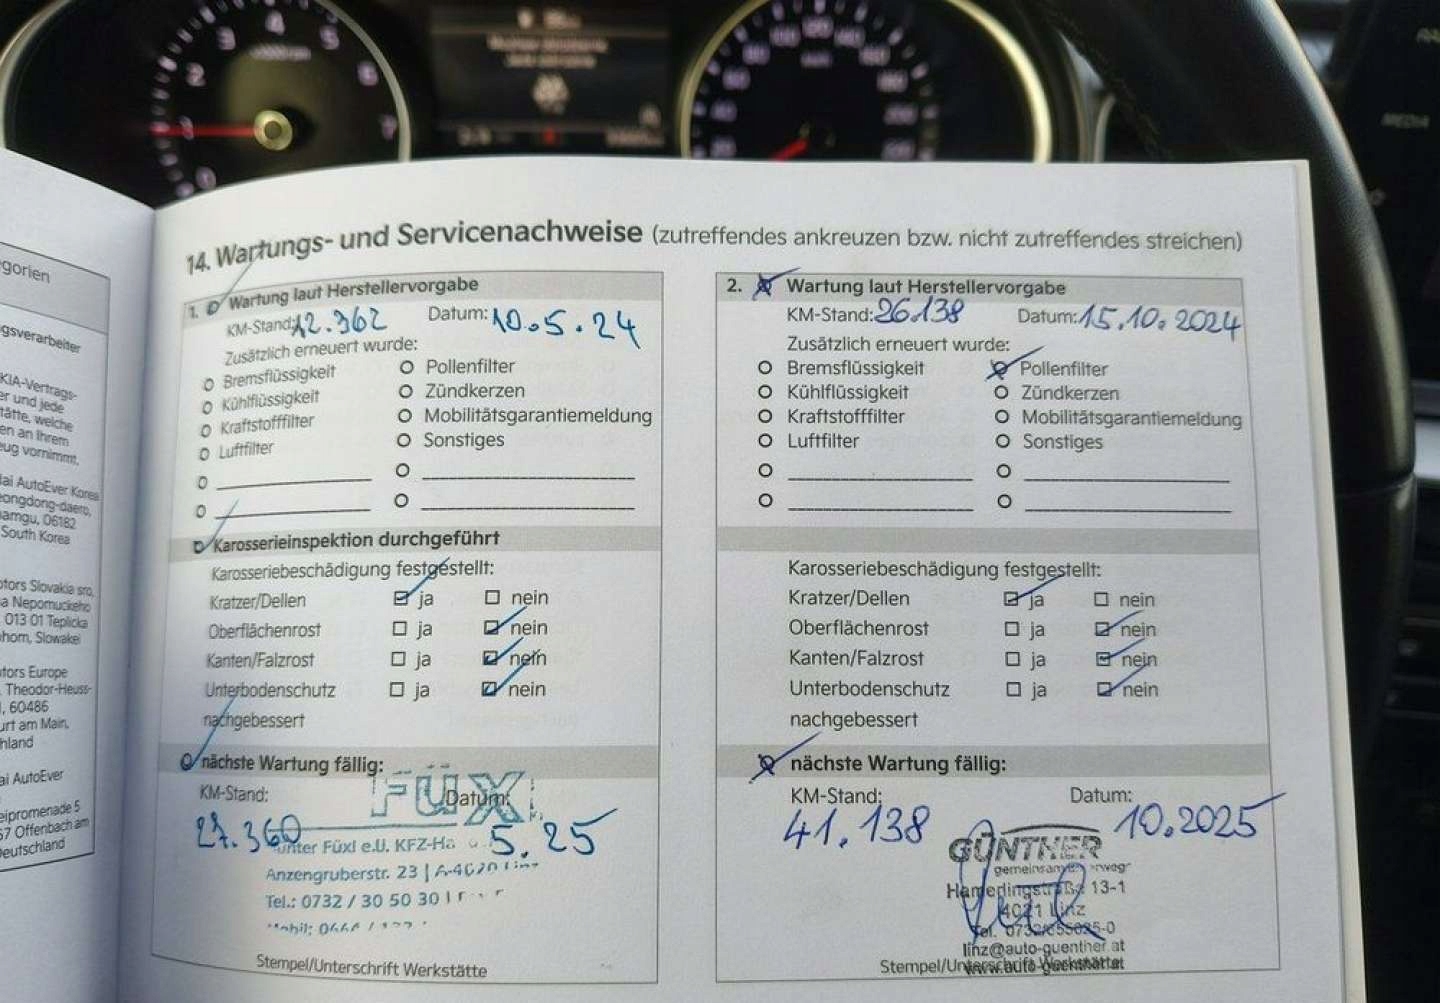 14. Wartungs- und Servicenachweise (zutreffendes ankreuzen bzw. nicht zutreffendes streichen)
1. Wartung laut Herstellervorgabe
KM-Stand: 12.362 Datum: 10.5.24
Zusätzlich erneuert wurde:
Bremsflüssigkeit Pollenfilter
Kühlflüssigkeit Zündkerzen
Kraftstofffilter Mobilitätsgarantiemeldung
Luftfilter Sonstiges
Karosserieinspektion durchgeführt
Karosseriebeschädigung festgestellt:
Kratzer/Dellen ja nein
Oberflächenrost ja nein
Kanten/Falzrost ja nein
Unterbodenschutz ja nein
nachgebessert
nächste Wartung fällig:
KM-Stand: Datum:
27.360 5.25
FÜXL
Günter Füxl e.U. KFZ-
Anzengruberstr. 23 | A-4020 Linz
Tel.: 0732 / 30 50 30 |
Mobil:
Stempel/Unterschrift Werkstätte
2. Wartung laut Herstellervorgabe
KM-Stand: 26.138 Datum: 15.10.2024
Zusätzlich erneuert wurde:
Bremsflüssigkeit Pollenfilter
Kühlflüssigkeit Zündkerzen
Kraftstofffilter Mobilitätsgarantiemeldung
Luftfilter Sonstiges
Karosseriebeschädigung festgestellt:
Kratzer/Dellen ja nein
Oberflächenrost ja nein
Kanten/Falzrost ja nein
Unterbodenschutz ja nein
nachgebessert
nächste Wartung fällig:
KM-Stand: Datum:
41.138 10.2025
GÜNTHER
Hamerlingstraße 13-1
4021 Linz
linz@auto-guenther.at
www.auto-guenther.at
Stempel/Unterschrift Werkstätte
gorien
gsverarbeiter
KIA-Vertrags-
er und jede
tätte, welche
en an Ihrem
eug vornimmt.
ai AutoEver Korea
eongdong-daero,
amgu, 06182
South Korea
otors Slovakia sro,
a Nepomuckeho
013 01 Teplicka
hom, Slowakei
otors Europe
Theodor-Heuss-
60486
urt am Main,
hland
ai AutoEver
eipromenade 5
67 Offenbach am
Deutschland
MEDIA